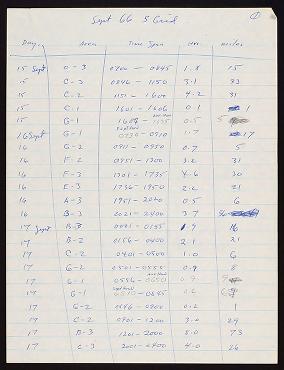 Sept 66 S Grid 1
Day Area Time Span Hrs. Miles
15 Sept D-3 0700 - 0845 1.8 15
15 C-3 0846 - 1150 3.1 33
15 C-2 1151 - 1600 4.2 31
15 C-1 1601 - 1606 0.1 1
15 G-1 0.5 5
16 Sept G-1 - 0910 1.7 17
16 G-2 0911 - 0950 0.7 5
16 F-2 0951 - 1300 3.2 31
16 F-3 1301 - 1735 4.6 30
16 E-3 1736 - 1950 2.2 21
16 A-3 1951 - 2020 0.5 6
16 B-3 2021 - 2400 3.7
17 Sept B-3 0001 - 0155 1.9 16
17 B-2 0156 - 0400 2.1 21
17 C-2 0401 - 0500 1.0 6
17 G-2 0501 - 0555 0.9 8
17 G-1 0556 - 0650 0.9
17 G-1 - 0845 0.2
17 G-2 0846 - 0900 0.2 1
17 C-2 0901 - 1200 3.0 29
17 B-3 1201 - 2000 8.0 73
17 C-3 2001 - 2400 4.0 26